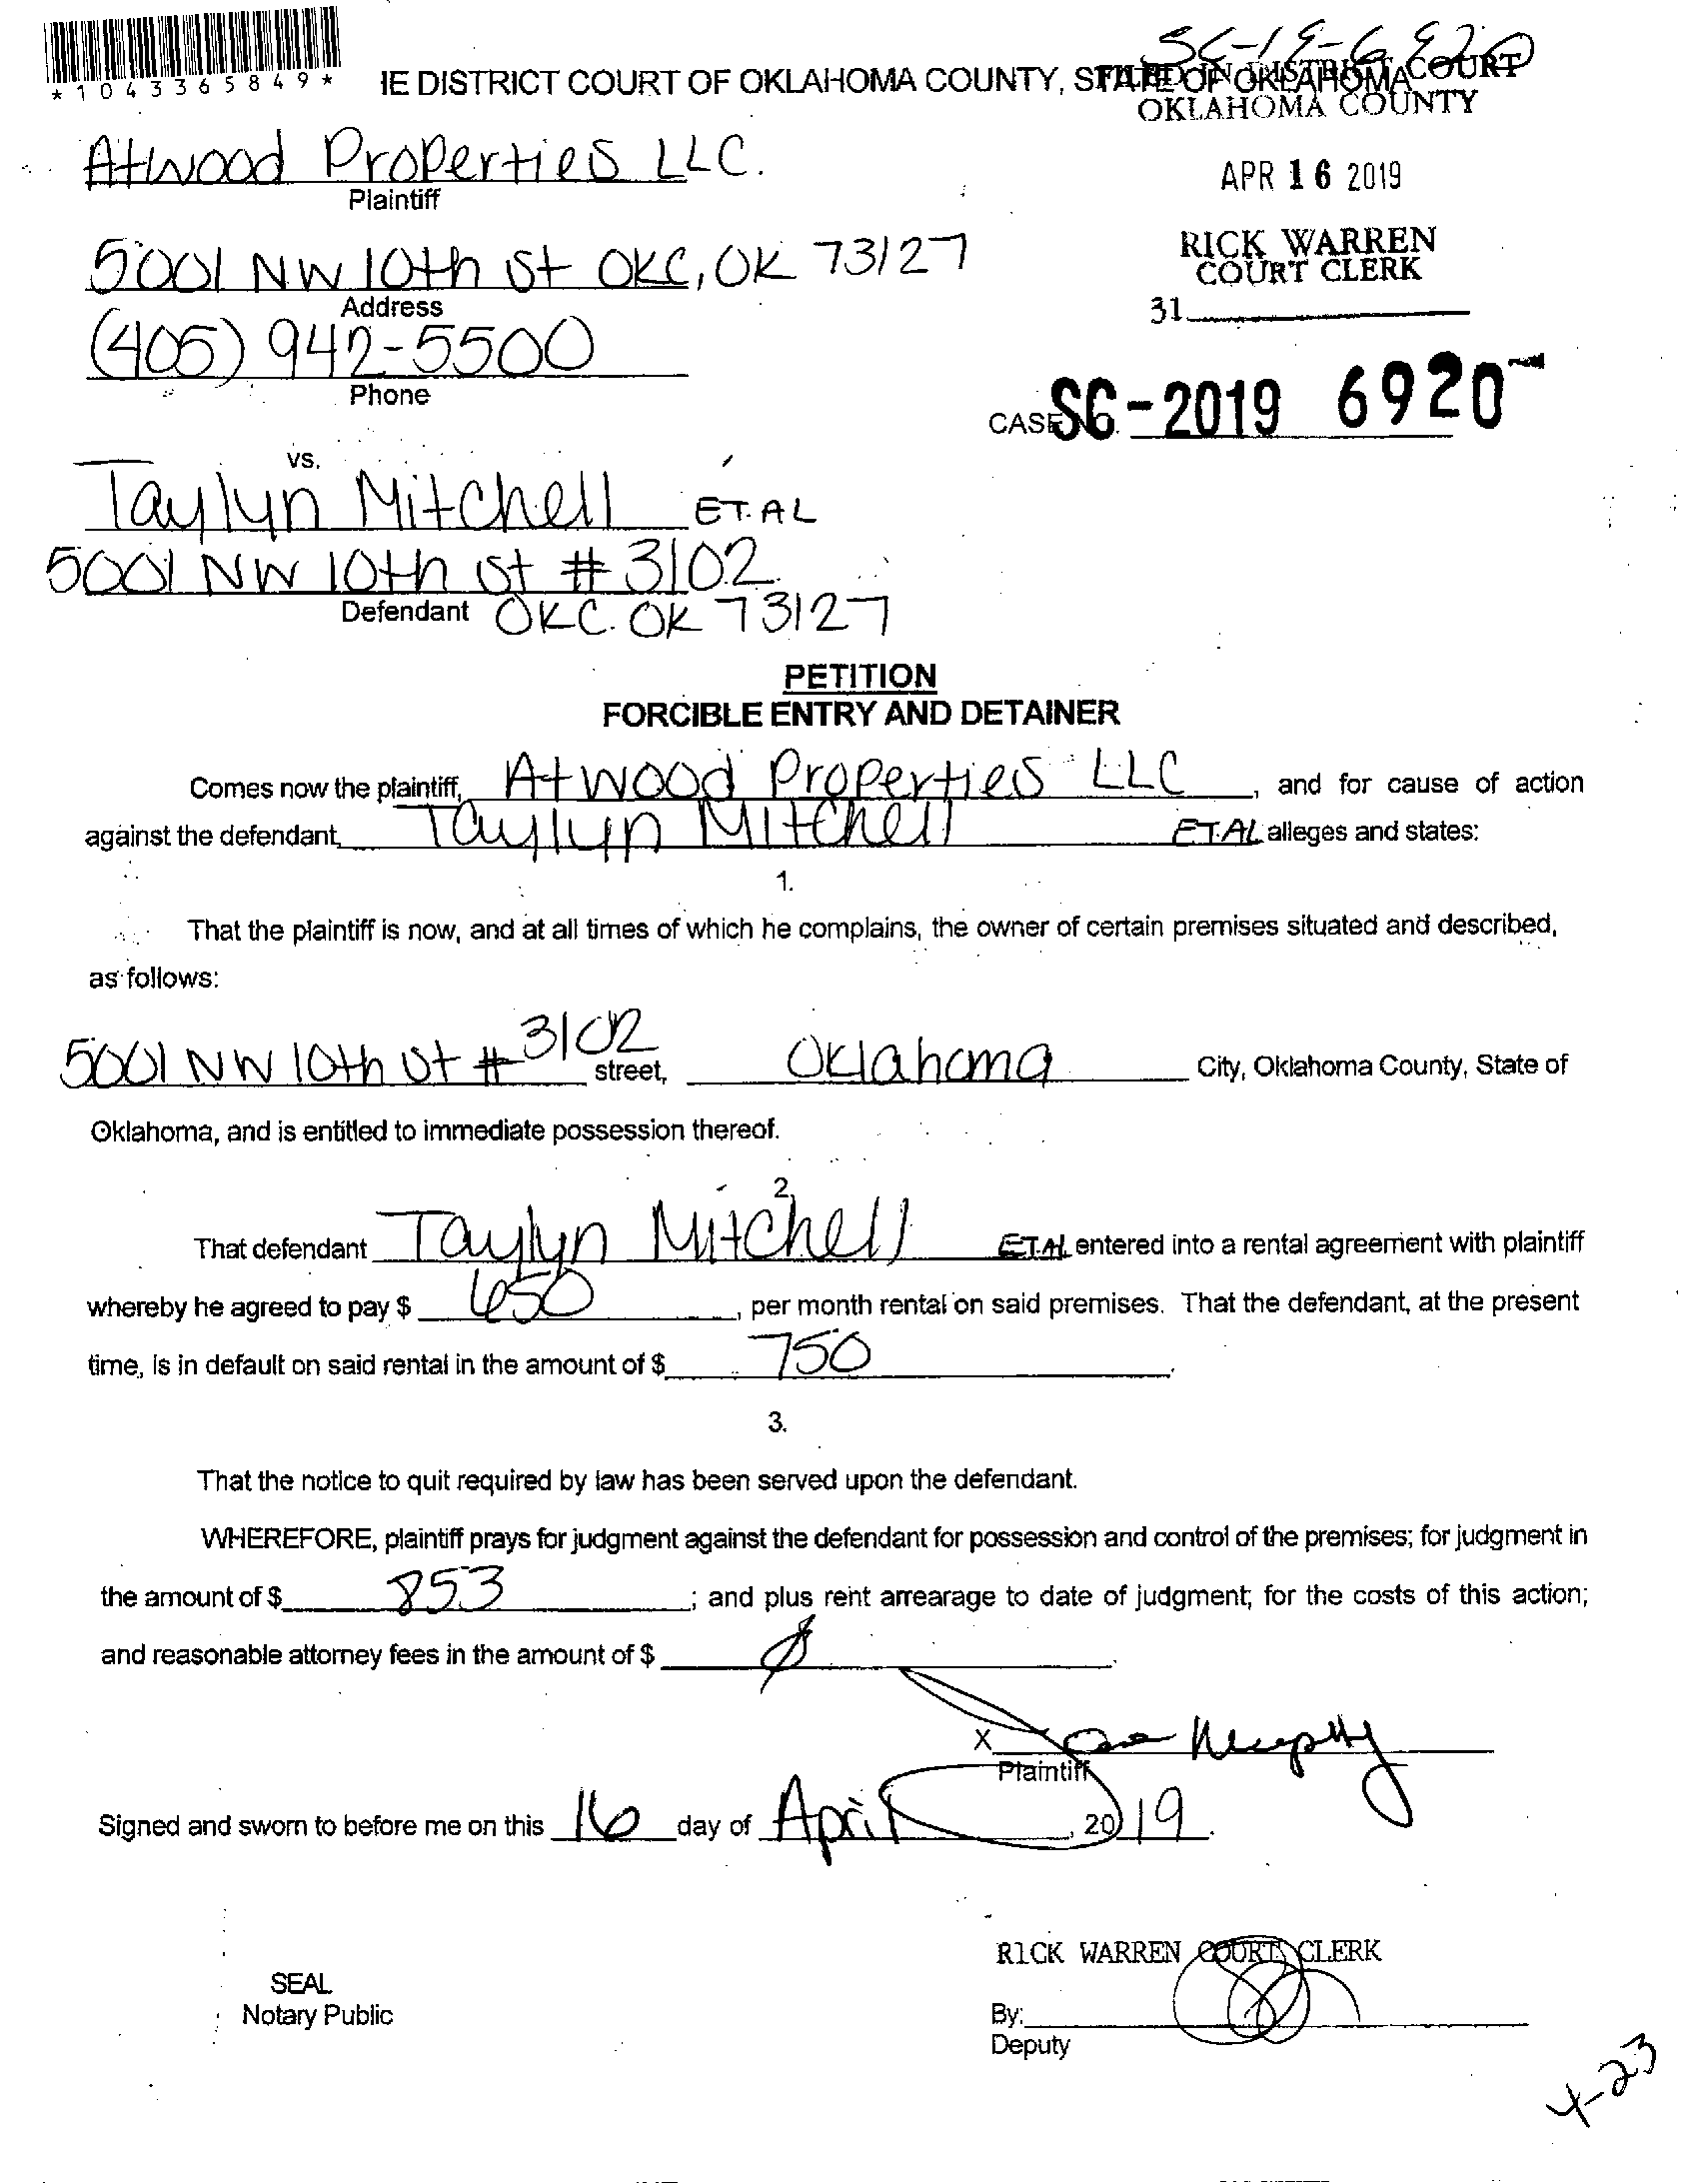 SC-19-6920
*1043365849*
IE DISTRICT COURT OF OKLAHOMA COUNTY, STATE OF OKLAHOMA
FILED IN DISTRICT COURT
OKLAHOMA COUNTY
Atwood Properties LLC.
Plaintiff
APR 16 2019
5001 NW 10th St OKC, OK 73127
Address
RICK WARREN
COURT CLERK
31
(405) 942-5500
Phone
CASE NO. SC-2019 6920
vs.
Taylyn Mitchell ET.AL
5001 NW 10th St # 3102
Defendant OKC. OK 73127
PETITION
FORCIBLE ENTRY AND DETAINER
Comes now the plaintiff, Atwood Properties LLC, and for cause of action
against the defendant, Taylyn Mitchell ET.AL alleges and states:
1.
That the plaintiff is now, and at all times of which he complains, the owner of certain premises situated and described,
as follows:
5001 NW 10th St # 3102 street, Oklahoma City, Oklahoma County, State of
Oklahoma, and is entitled to immediate possession thereof.
2.
That defendant Taylyn Mitchell ET.AL entered into a rental agreement with plaintiff
whereby he agreed to pay $ 650, per month rental on said premises. That the defendant, at the present
time, is in default on said rental in the amount of $ 750.
3.
That the notice to quit required by law has been served upon the defendant.
WHEREFORE, plaintiff prays for judgment against the defendant for possession and control of the premises; for judgment in
the amount of $ 853; and plus rent arrearage to date of judgment; for the costs of this action;
and reasonable attorney fees in the amount of $ Ø.
X Murphy
Plaintiff
Signed and sworn to before me on this 16 day of April, 2019.
RICK WARREN COURT CLERK
SEAL
Notary Public
By:
Deputy
4-23